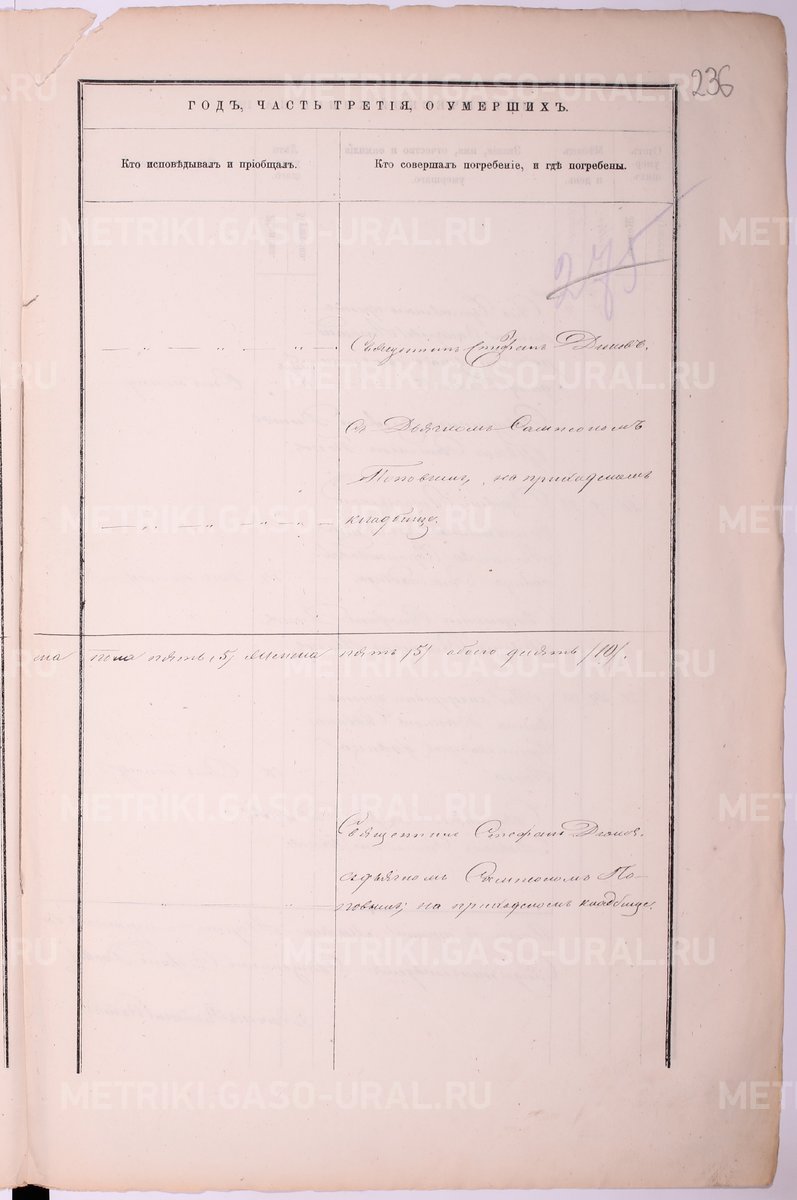 236
ГОДЪ, ЧАСТЬ ТРЕТІЯ, О УМЕРШИХЪ.
Кто исповѣдывалъ и пріобщалъ.
Кто совершалъ погребеніе, и гдѣ погребены.
275
Священникъ Стефанъ
съ Дьячкомъ Сампсономъ
Поповымъ, на приходскомъ
кладбищѣ.
пола пять /5/ женска пять /5/ обоего десять /10/.
Священникъ Стефанъ
съ дьячкомъ Сампсономъ По-
повымъ, на приходскомъ кладбищѣ.
METRIKI.GASO-URAL.RU